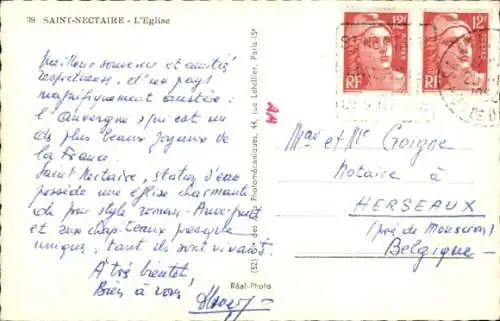 39 SAINT-NECTAIRE - L'Eglise
Meilleur souvenir et amitiés
respectueuses, d'un pays
magnifiquement austère :
l'Auvergne qui est un
des plus beaux joyaux de
la France.
Saint Nectaire, station d'eau
possède une église charmante
du pur style roman-Auvergnat
et aux chapiteaux presque
uniques, tant ils sont vivants.
A très bientôt,
Bien à vous
Réal-Photo
des Photomécaniques, 44, rue Letellier, Paris-15e
12F
POSTES
RF
12F
RF
et Me Goigne
Notaire à
HERSEAUX
(près de Mouscron)
Belgique